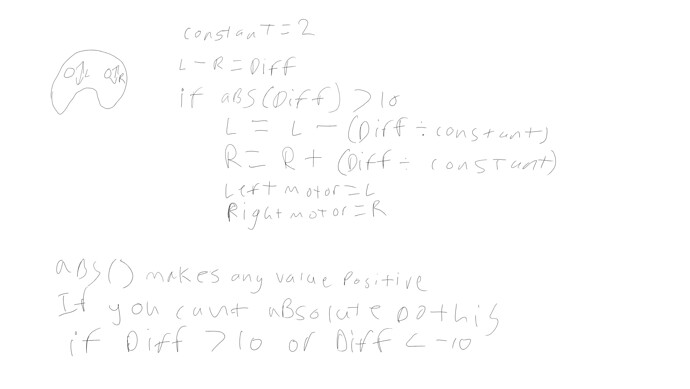 constanT = 2
L - R = Diff
if aBS(Diff) > 10
L = L - (Diff ÷ constant)
R = R + (Diff ÷ consTant)
Left motor = L
Right motor = R
OL OR
aBS() makes any value Positive
If you cant aBsolute Do this
if Diff > 10 or Diff < -10